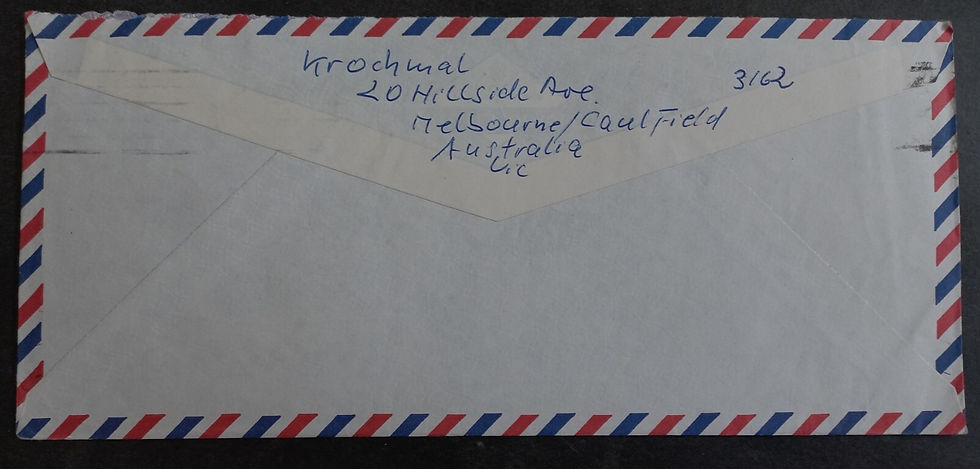 Krochmal
20 Hillside Ave. 3162
Melbourne/Caulfield
Australia
Vic